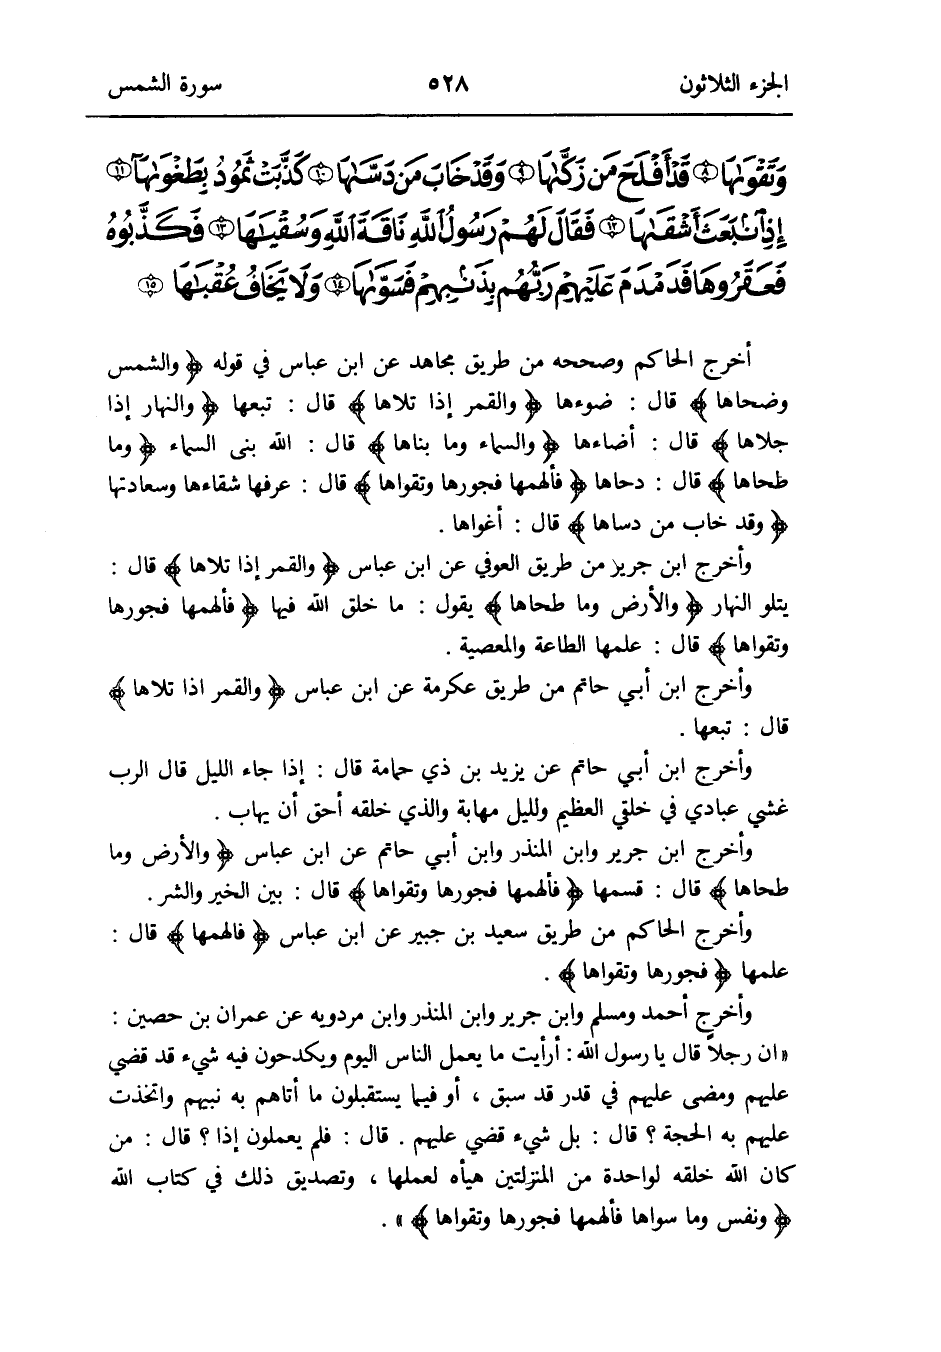 الجزء الثلاثون ٥٢٨ سورة الشمس
وَتَقْوَىٰهَا ﴿٨﴾ قَدْ أَفْلَحَ مَن زَكَّىٰهَا ﴿٩﴾ وَقَدْ خَابَ مَن دَسَّىٰهَا ﴿١٠﴾ كَذَّبَتْ ثَمُودُ بِطَغْوَىٰهَآ ﴿١١﴾
إِذِ ٱنۢبَعَثَ أَشْقَىٰهَا ﴿١٢﴾ فَقَالَ لَهُمْ رَسُولُ ٱللَّهِ نَاقَةَ ٱللَّهِ وَسُقْيَـٰهَا ﴿١٣﴾ فَكَذَّبُوهُ
فَعَقَرُوهَا فَدَمْدَمَ عَلَيْهِمْ رَبُّهُم بِذَنۢبِهِمْ فَسَوَّىٰهَا ﴿١٤﴾ وَلَا يَخَافُ عُقْبَـٰهَا ﴿١٥﴾
أخرج الحاكم وصححه من طريق مجاهد عن ابن عباس في قوله ﴿ والشمس
وضحاها ﴾ قال : ضوءها ﴿ والقمر إذا تلاها ﴾ قال : تبعها ﴿ والنهار إذا
جلاها ﴾ قال : أضاءها ﴿ والسماء وما بناها ﴾ قال : الله بنى السماء ﴿ وما
طحاها ﴾ قال : دحاها ﴿ فألهمها فجورها وتقواها ﴾ قال : عرفها شقاءها وسعادتها
﴿ وقد خاب من دساها ﴾ قال : أغواها .
وأخرج ابن جرير من طريق العوفي عن ابن عباس ﴿ والقمر إذا تلاها ﴾ قال :
يتلو النهار ﴿ والأرض وما طحاها ﴾ يقول : ما خلق الله فيها ﴿ فألهمها فجورها
وتقواها ﴾ قال : علمها الطاعة والمعصية .
وأخرج ابن أبي حاتم من طريق عكرمة عن ابن عباس ﴿ والقمر اذا تلاها ﴾
قال : تبعها .
وأخرج ابن أبي حاتم عن يزيد بن ذي حمامة قال : إذا جاء الليل قال الرب
غشي عبادي في خلقي العظيم ولليل مهابة والذي خلقه أحق أن يهاب .
وأخرج ابن جرير وابن المنذر وابن أبي حاتم عن ابن عباس ﴿ والأرض وما
طحاها ﴾ قال : قسمها ﴿ فألهمها فجورها وتقواها ﴾ قال : بين الخير والشر .
وأخرج الحاكم من طريق سعيد بن جبير عن ابن عباس ﴿ فالهمها ﴾ قال :
علمها ﴿ فجورها وتقواها ﴾ .
وأخرج أحمد ومسلم وابن جرير وابن المنذر وابن مردويه عن عمران بن حصين :
« ان رجلاً قال يا رسول الله : أرأيت ما يعمل الناس اليوم ويكدحون فيه شيء قد قضي
عليهم ومضى عليهم في قدر قد سبق ، أو فيما يستقبلون ما أتاهم به نبيهم واتخذت
عليهم به الحجة ؟ قال : بل شيء قضي عليهم . قال : فلم يعملون إذا ؟ قال : من
كان الله خلقه لواحدة من المنزلتين هيأه لعملها ، وتصديق ذلك في كتاب الله
﴿ ونفس وما سواها فألهمها فجورها وتقواها ﴾ » .